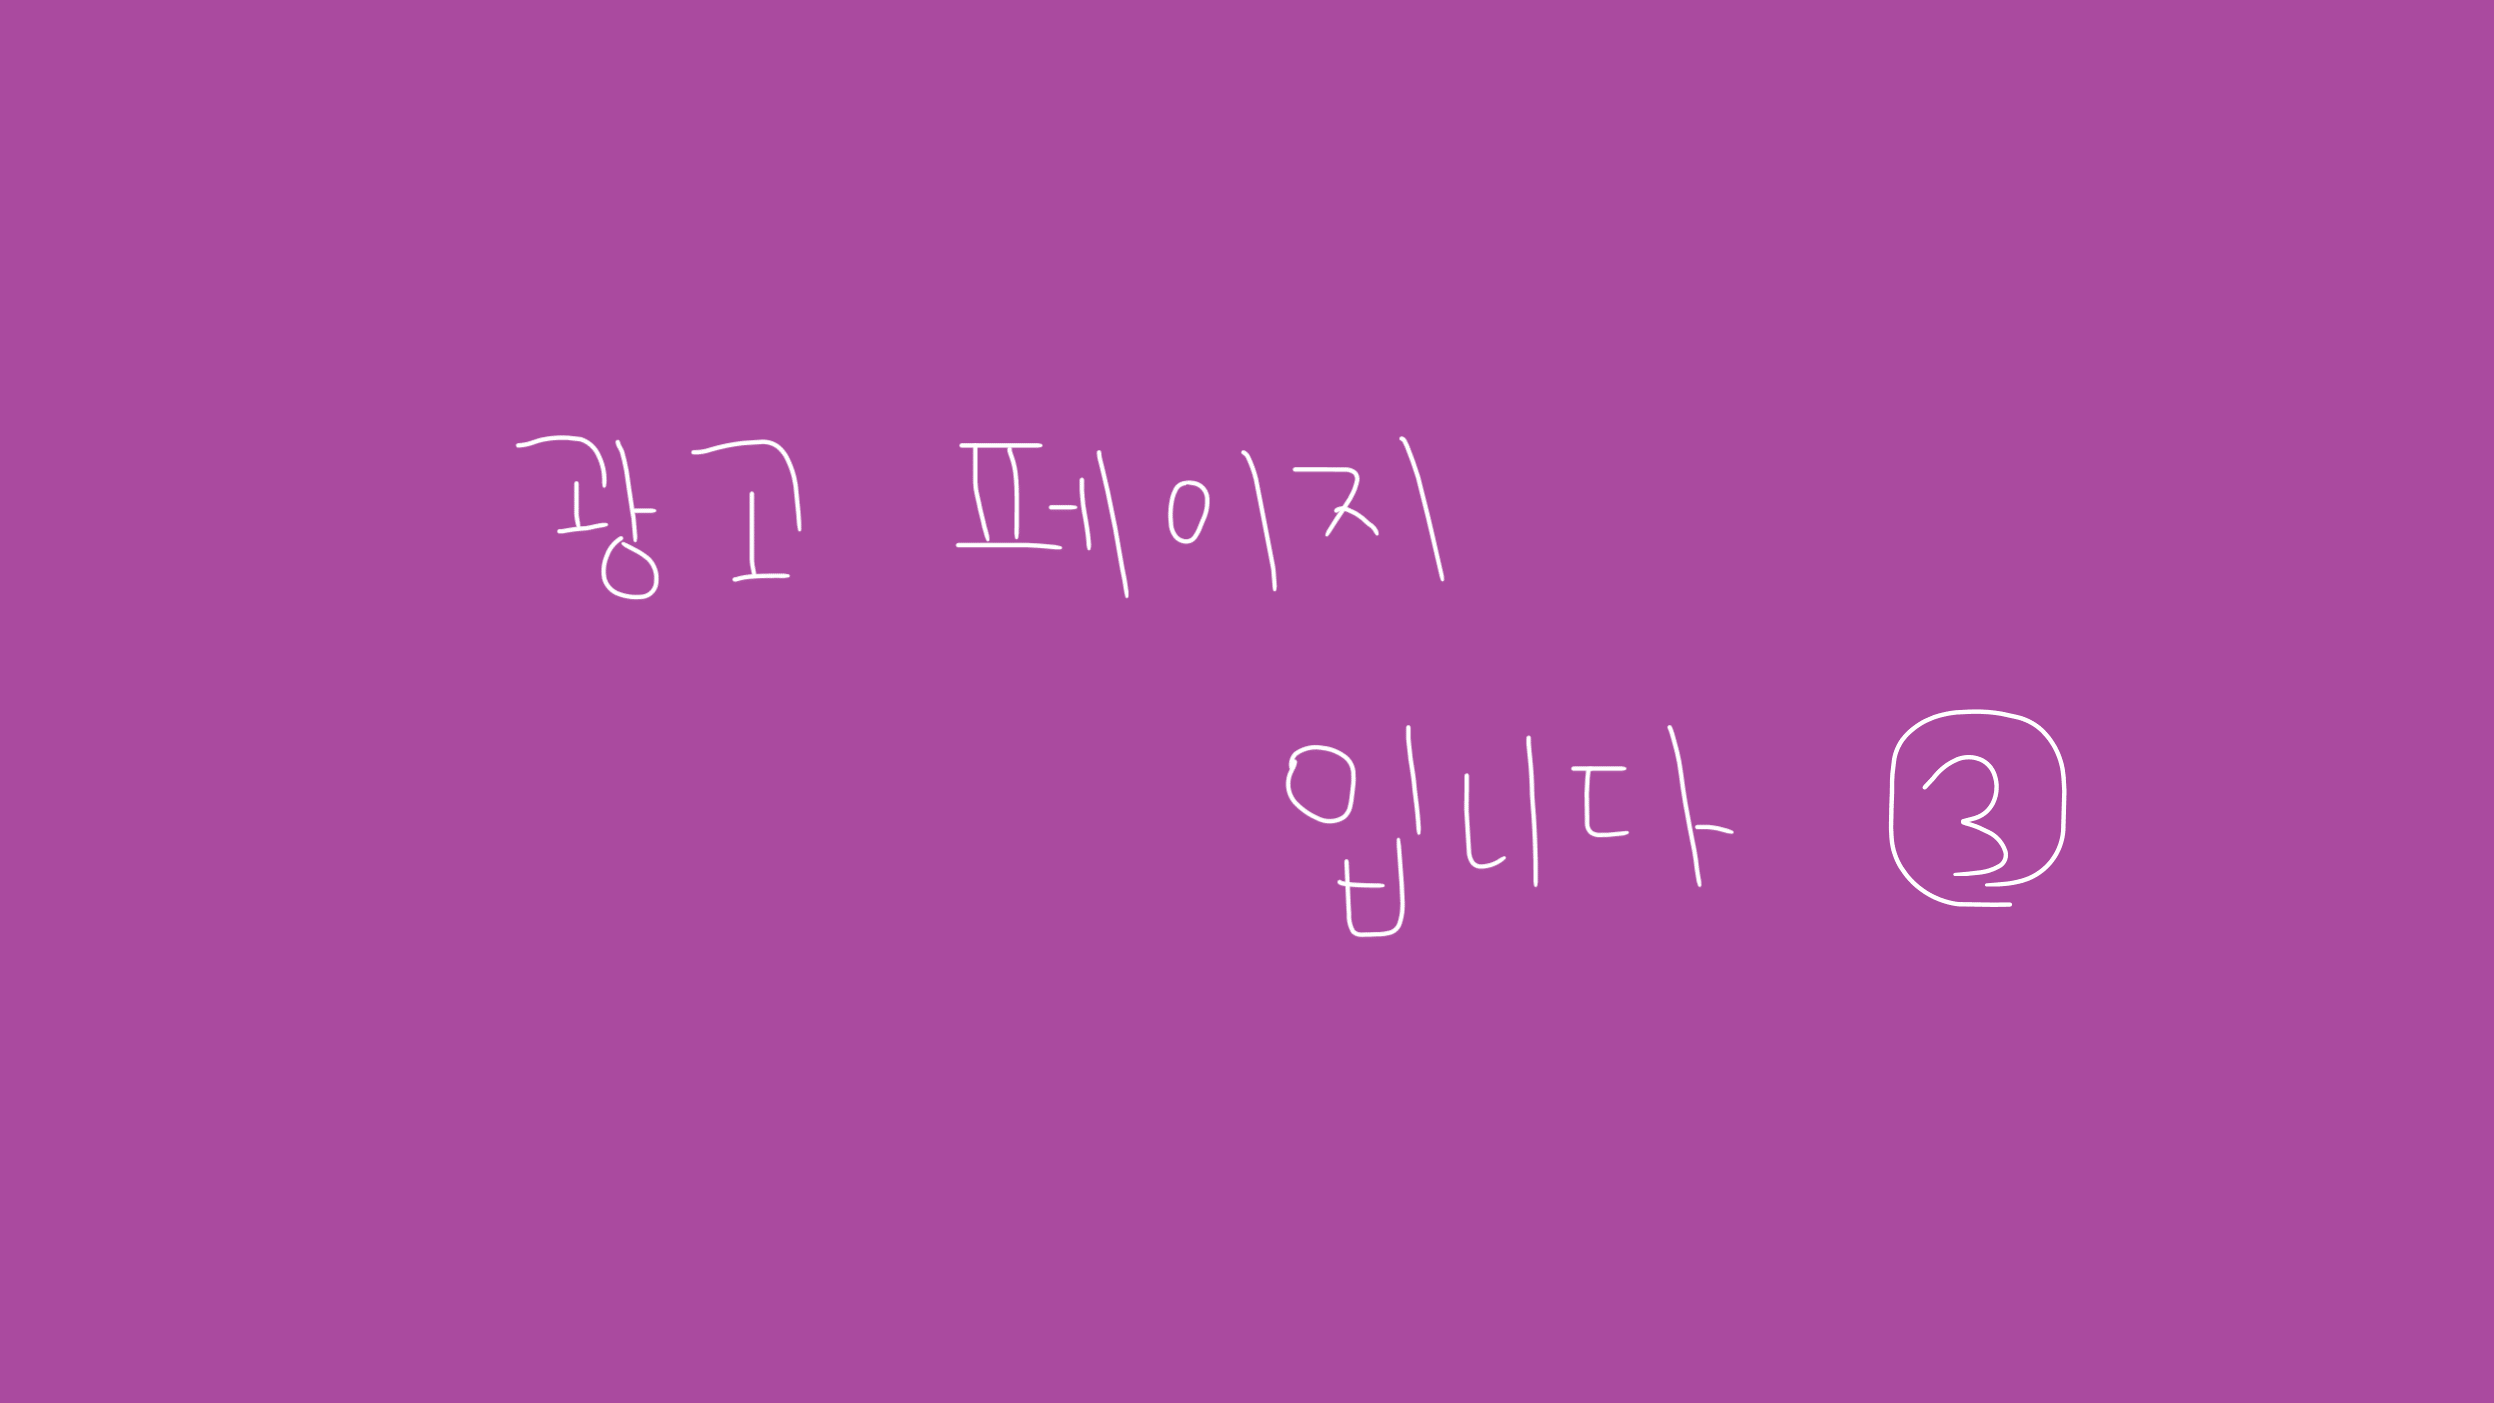 광고 페이지
입니다 ③